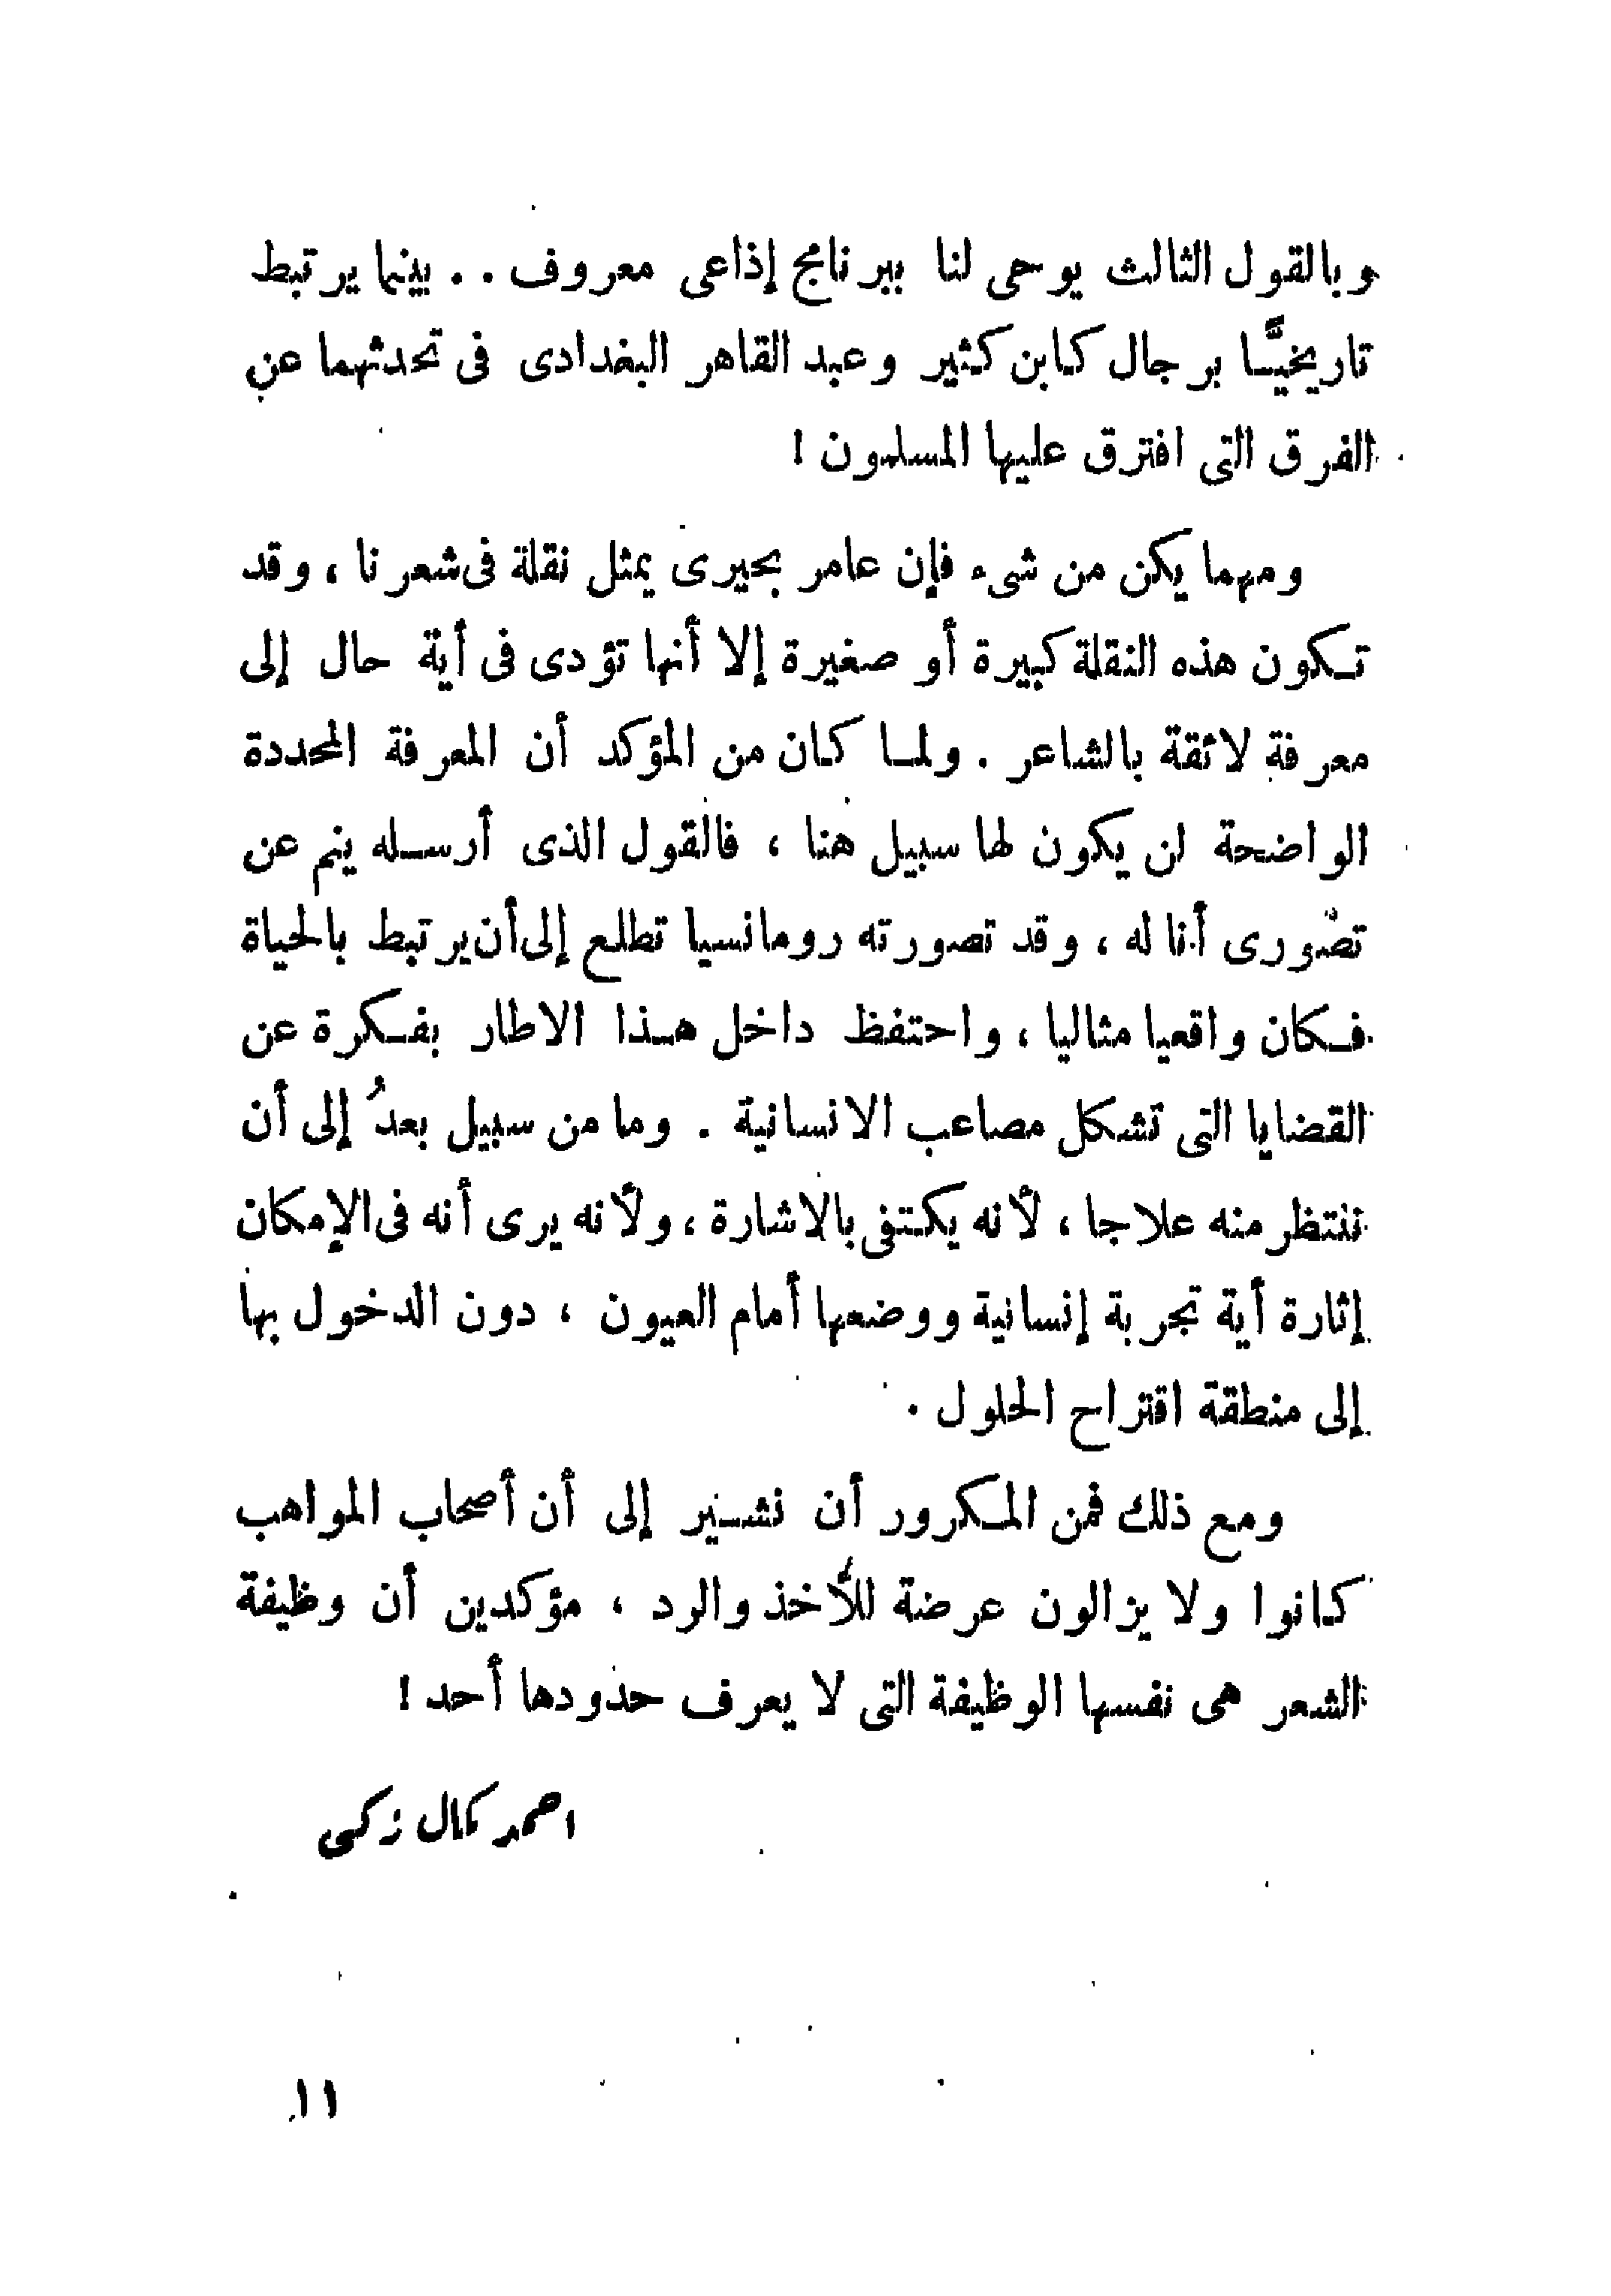 وبالقول الثالث يوحى لنا ببرنامج إذاعى معروف .. بينما يرتبط
تاريخيًّا برجال كابن كثير وعبد القاهر البغدادى فى تحدثهما عن
الفرق التى افترق عليها المسلمون !
ومهما يكن من شىء فإن عامر بحيرى يمثل نقلة فى شعرنا ، وقد
تكون هذه النقلة كبيرة أو صغيرة إلا أنها تؤدى فى أية حال إلى
معرفة لائقة بالشاعر . ولما كان من المؤكد أن المعرفة المحددة
الواضحة لن يكون لها سبيل هنا ، فالقول الذى أرسله ينم عن
تصورى أنا له ، وقد تصورته رومانسيا تطلع إلى أن يرتبط بالحياة
فكان واقعيا مثاليا ، واحتفظ داخل هذا الاطار بفكرة عن
القضايا التى تشكل مصاعب الانسانية . وما من سبيل بعدُ إلى أن
ننتظر منه علاجا ، لأنه يكتفى بالاشارة ، ولأنه يرى أنه فى الإمكان
إثارة أية تجربة إنسانية ووضعها أمام العيون ، دون الدخول بها
إلى منطقة اقتراح الحلول .
ومع ذلك فمن المكرور أن نشير إلى أن أصحاب المواهب
كانوا ولا يزالون عرضة للأخذ والرد ، مؤكدين أن وظيفة
الشعر هى نفسها الوظيفة التى لا يعرف حدودها أحد !
احمد كمال زكى
١١